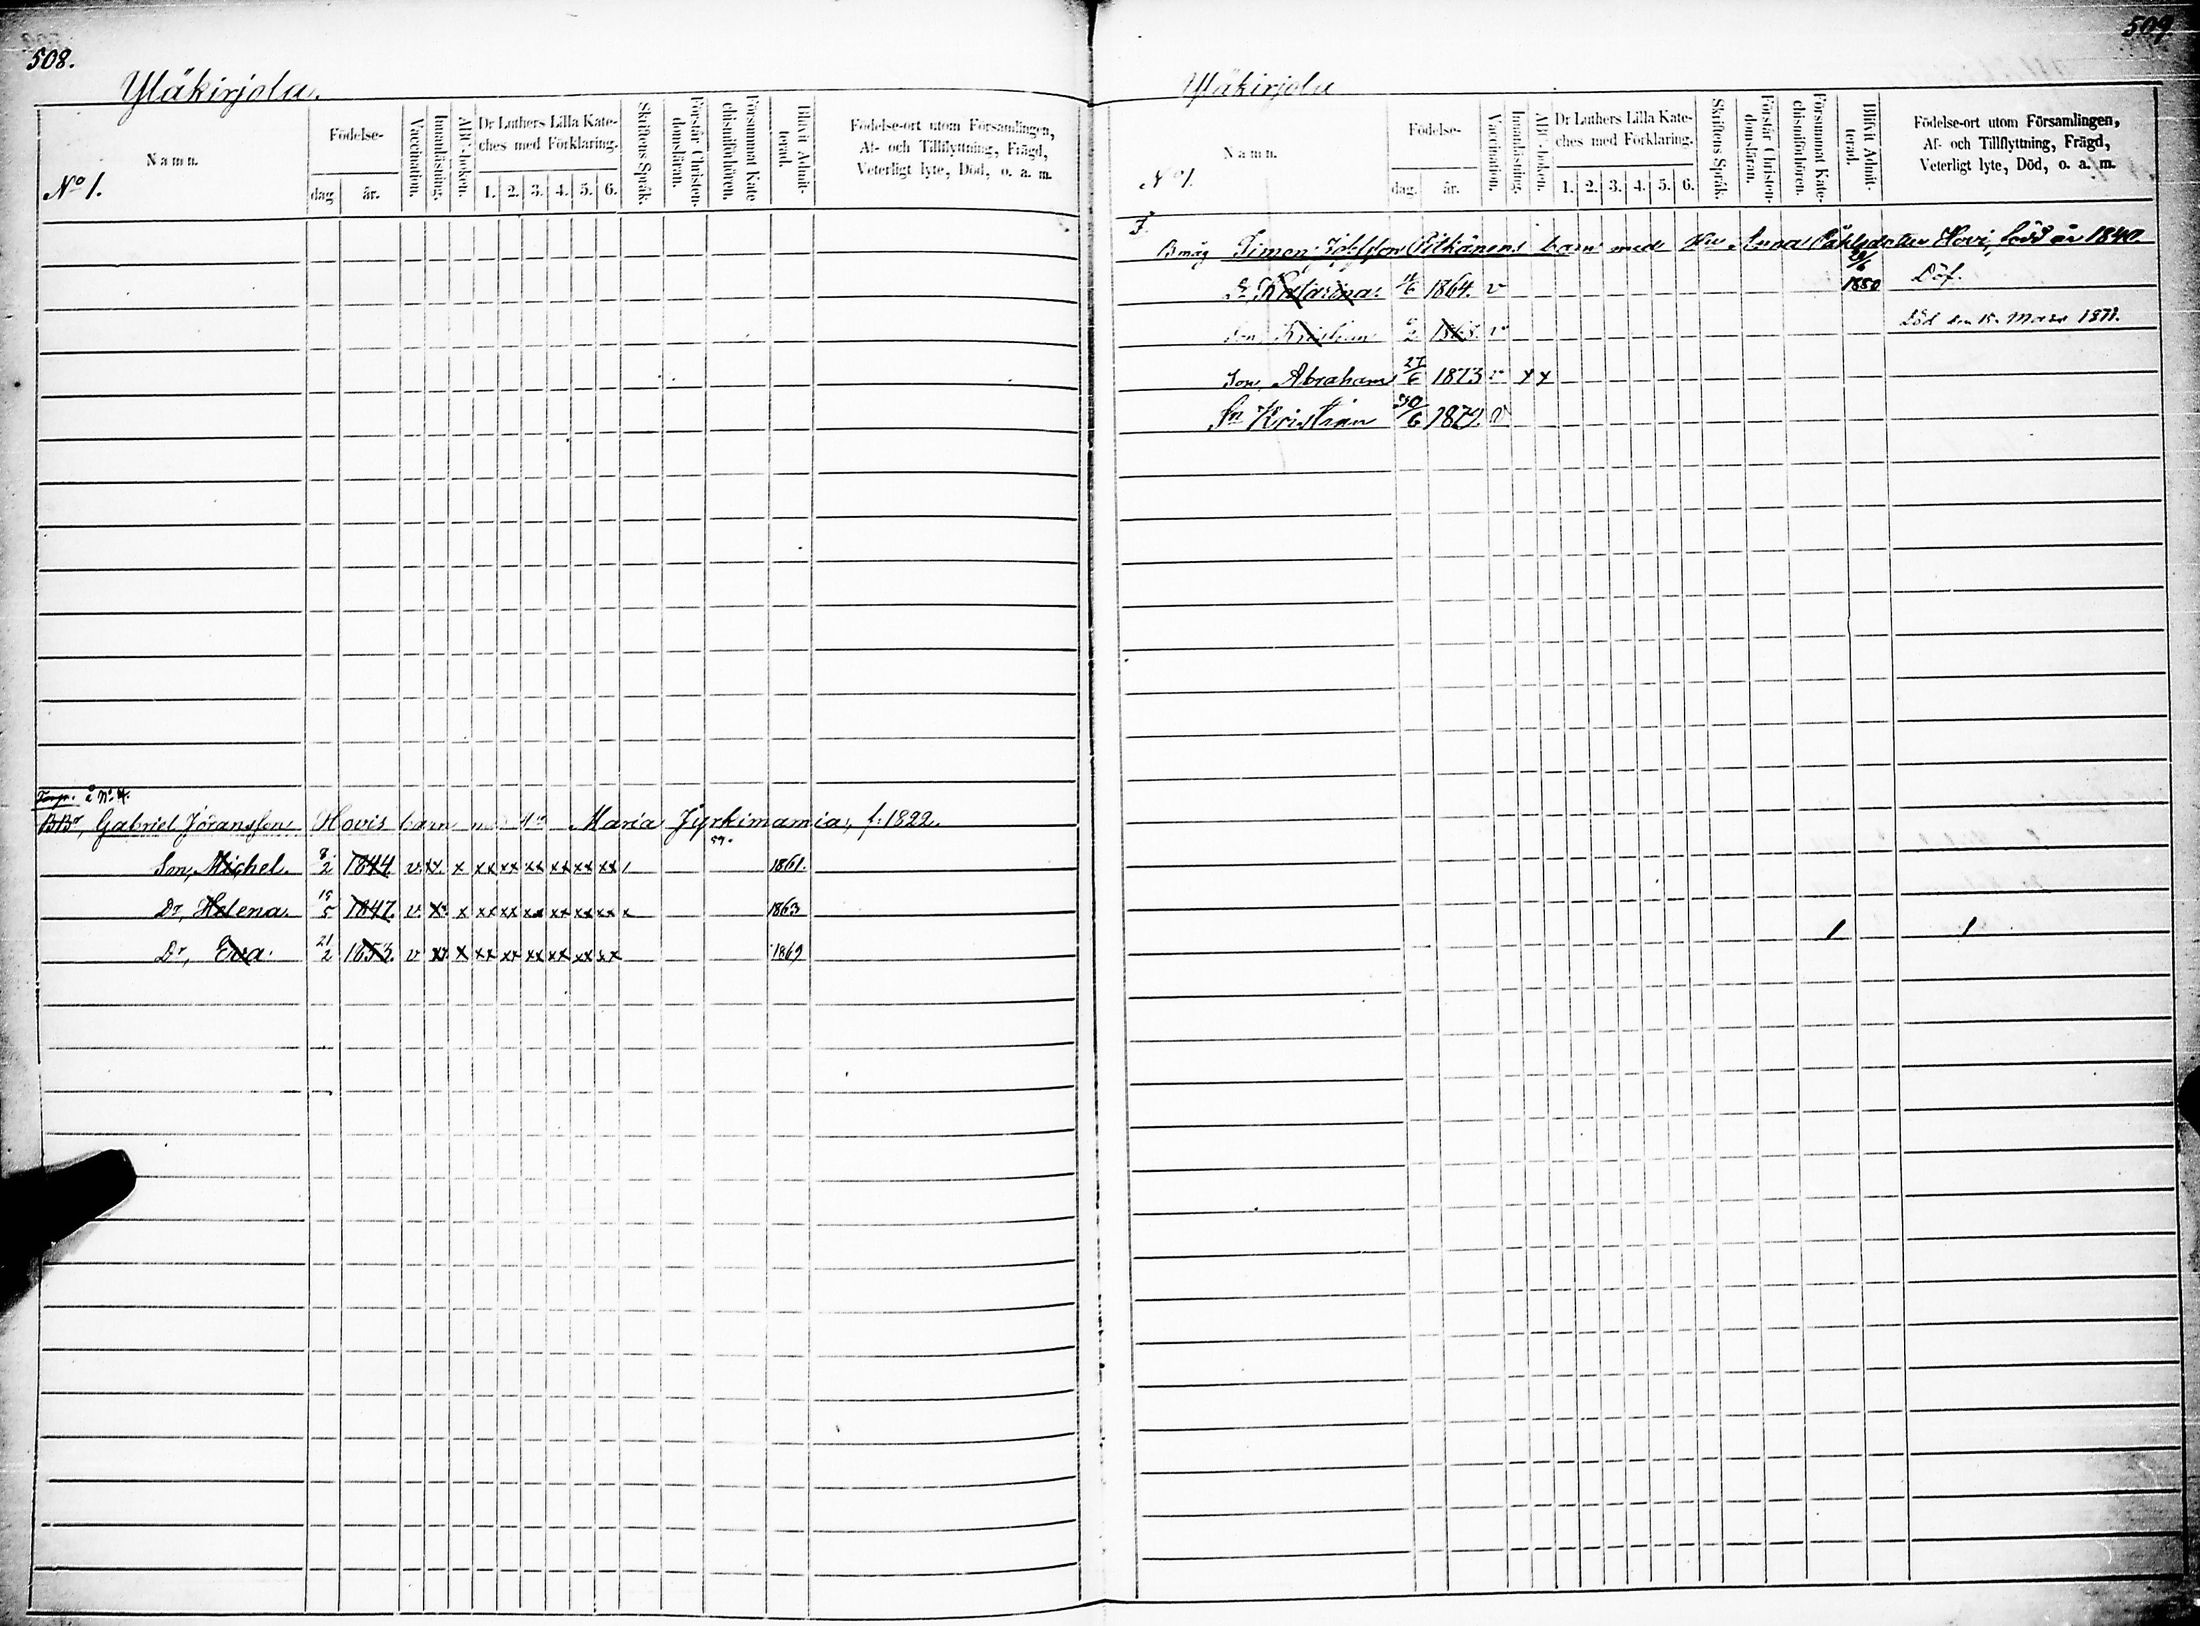 508.
Yläkirjola.
Namn.
No 1.
Födelse-
dag
år.
Vaccination.
Innanläsning.
ABC-boken.
Dr Luthers Lilla Kate-
ches med Förklaring.
1. 2. 3. 4. 5. 6.
Skriftens Språk.
Förstår Christen-
domsläran.
Försummat Kate
chismiförhören.
Blivit Admit-
terad.
Födelse-ort utom Församlingen,
Af- och Tillflyttning, Frägd,
Veterligt lyte, Död, o. a. m.
Torp. å No 4.
BBr, Gabriel Jöransson Hovis barn Maria Jyrkimamia, f. 1822.
59.
Son, Michel. 8/2 1844 v. x x xx xx xx xx xx xx 1861.
Dr, Helena. 15/5 1847 v. x x xx xx xx xx xx xx x 1863
Dr, Eva. 21/2 1853. v x x xx xx xx xx xx xx 1869
509.
Yläkirjola
Namn.
No 1.
Födelse-
dag.
år.
Vaccination.
Innanläsning.
ABC-boken.
Dr Luthers Lilla Kate-
ches med Förklaring.
1. 2. 3. 4. 5. 6.
Skriftens Språk.
Förstår Christen-
domsläran.
Försummat Kate-
chismiförhören.
Blivit Admit-
terad.
Födelse-ort utom Församlingen,
Af- och Tillflyttning, Frägd,
Veterligt lyte, Död, o. a. m.
Bmåg Simon Pitkänens barn med Anna Påhlsdotter Hovi, född år 1840.
Katarina. 1864. v 1880 Döf.
Son v Död den 15. Mars 1871.
Son, Abraham 27/6 1873 v x x
Sn Kristian 30/6 1879. v
1 1